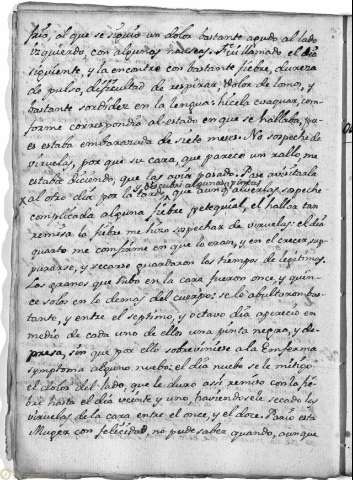 frio, al que se siguio un dolor bastante agudo al lado
izquierdo, con algunas nauseas. Fui llamado el dia
siguiente, y la encontre con bastante fiebre, dureza
de pulso, dificultad de respirar, dolor de lomos, y
bastante sordidez en la lengua: hicela evaquar, con-
forme correspondia al estado en que se hallaba, pu-
es estaba embarazada de siete meses. No sospeché de
viruelas, por que su cara, que parecia un rallo, me
estaba diciendo, que las avia pasado. Pase a visitarla
al otro dia por la tarde, descubri algunas pintas
que aun advertirlas sospeche
complicada alguna fiebre petequial, el hallar tan
remisa la fiebre me hizo sospechar de viruelas: el dia
quarto me confirme en que lo eran, y en el crecer, sup-
purarse, y secarse guardaron los tiempos de legitimas.
Los granos que hubo en la cara fueron once, y quin-
ce solos en lo demas del cuerpo: se le abultaron bas-
tante, y entre el septimo, y octavo dia aparecio en
medio de cada uno de ellos una pinta negra, y de-
presa, sin que por ello sobreviniese a la Enferma
symptoma alguno nuebo: el dia nuebe se le mitigo
el dolor del lado, que le duro asi remiso con la fie-
bre hasta el dia veinte y uno, haviendosele secado las
viruelas de la cara entre el once, y el doce. Pario esta
Muger con felicidad, no pude saber quando, aunque